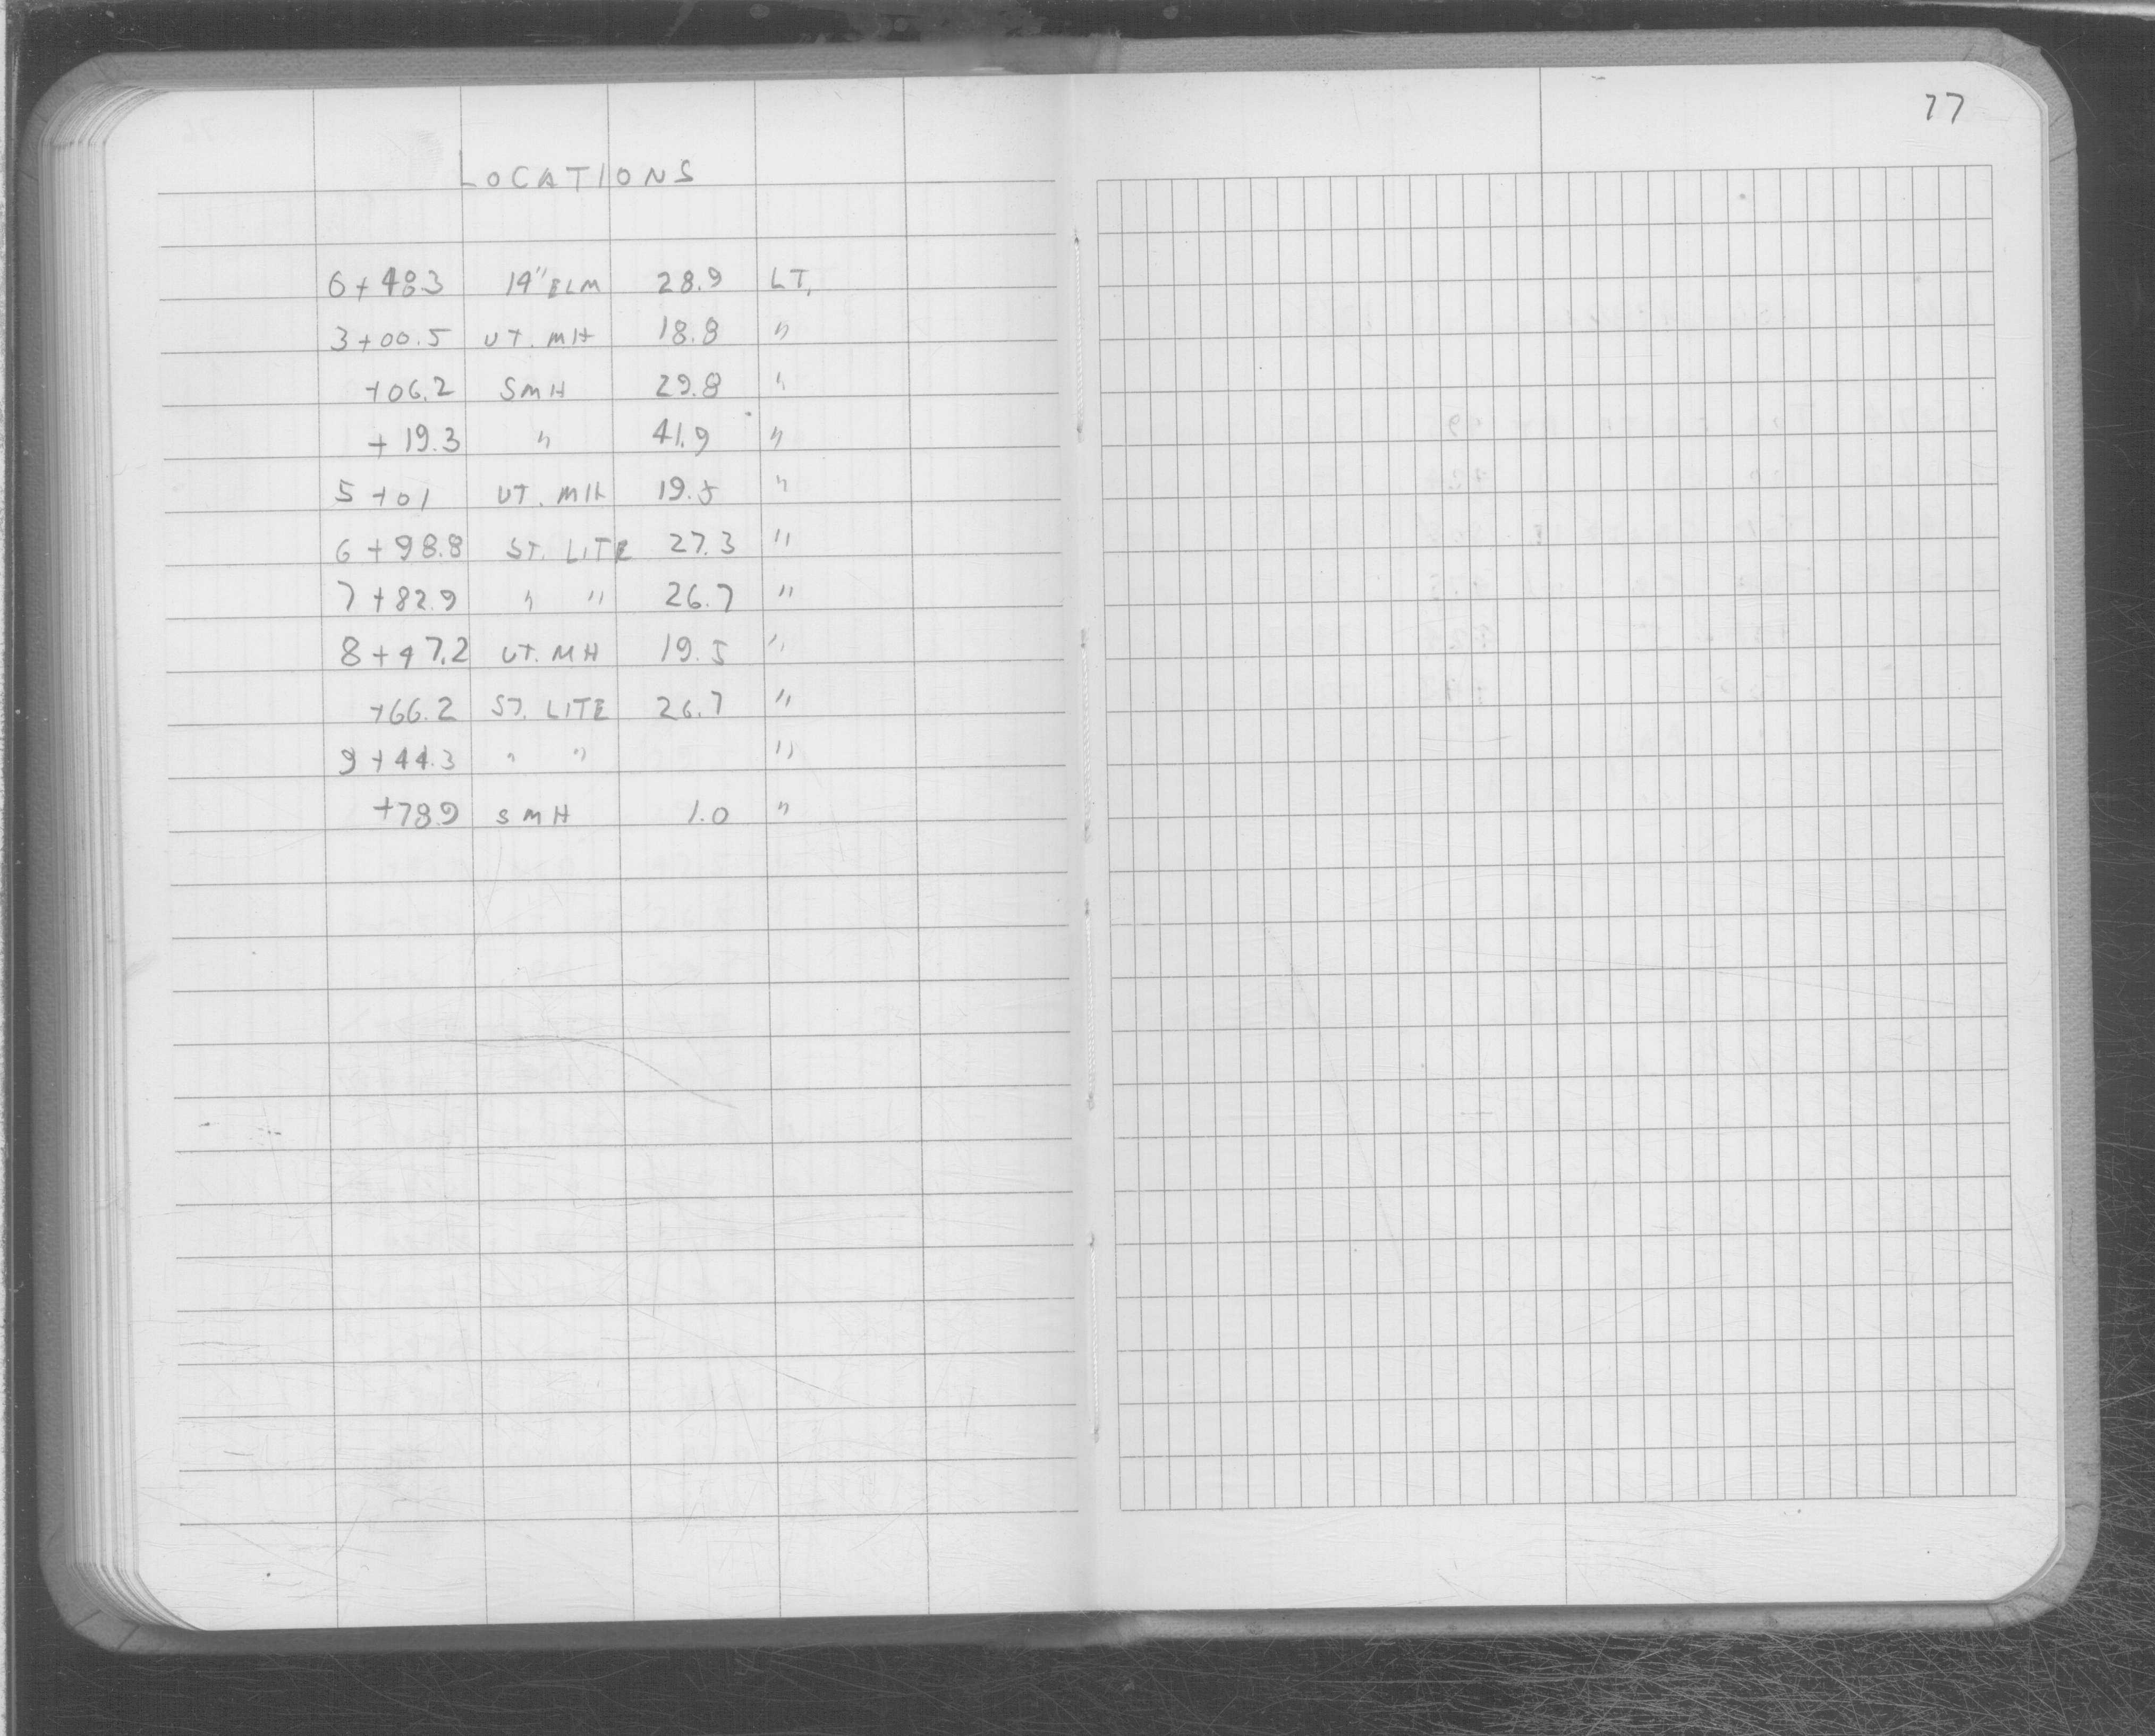 77
LOCATIONS
6+48.3 14" ELM 28.9 LT.
3+00.5 UT. MH 18.8 "
+06.2 SMH 29.8 "
+19.3 " 41.9 "
5+01 UT. MH 19.5 "
6+98.8 ST. LITE 27.3 "
7+82.9 " " 26.7 "
8+47.2 UT. MH 19.5 "
+66.2 ST. LITE 26.7 "
9+44.3 " " "
+78.9 SMH 1.0 "